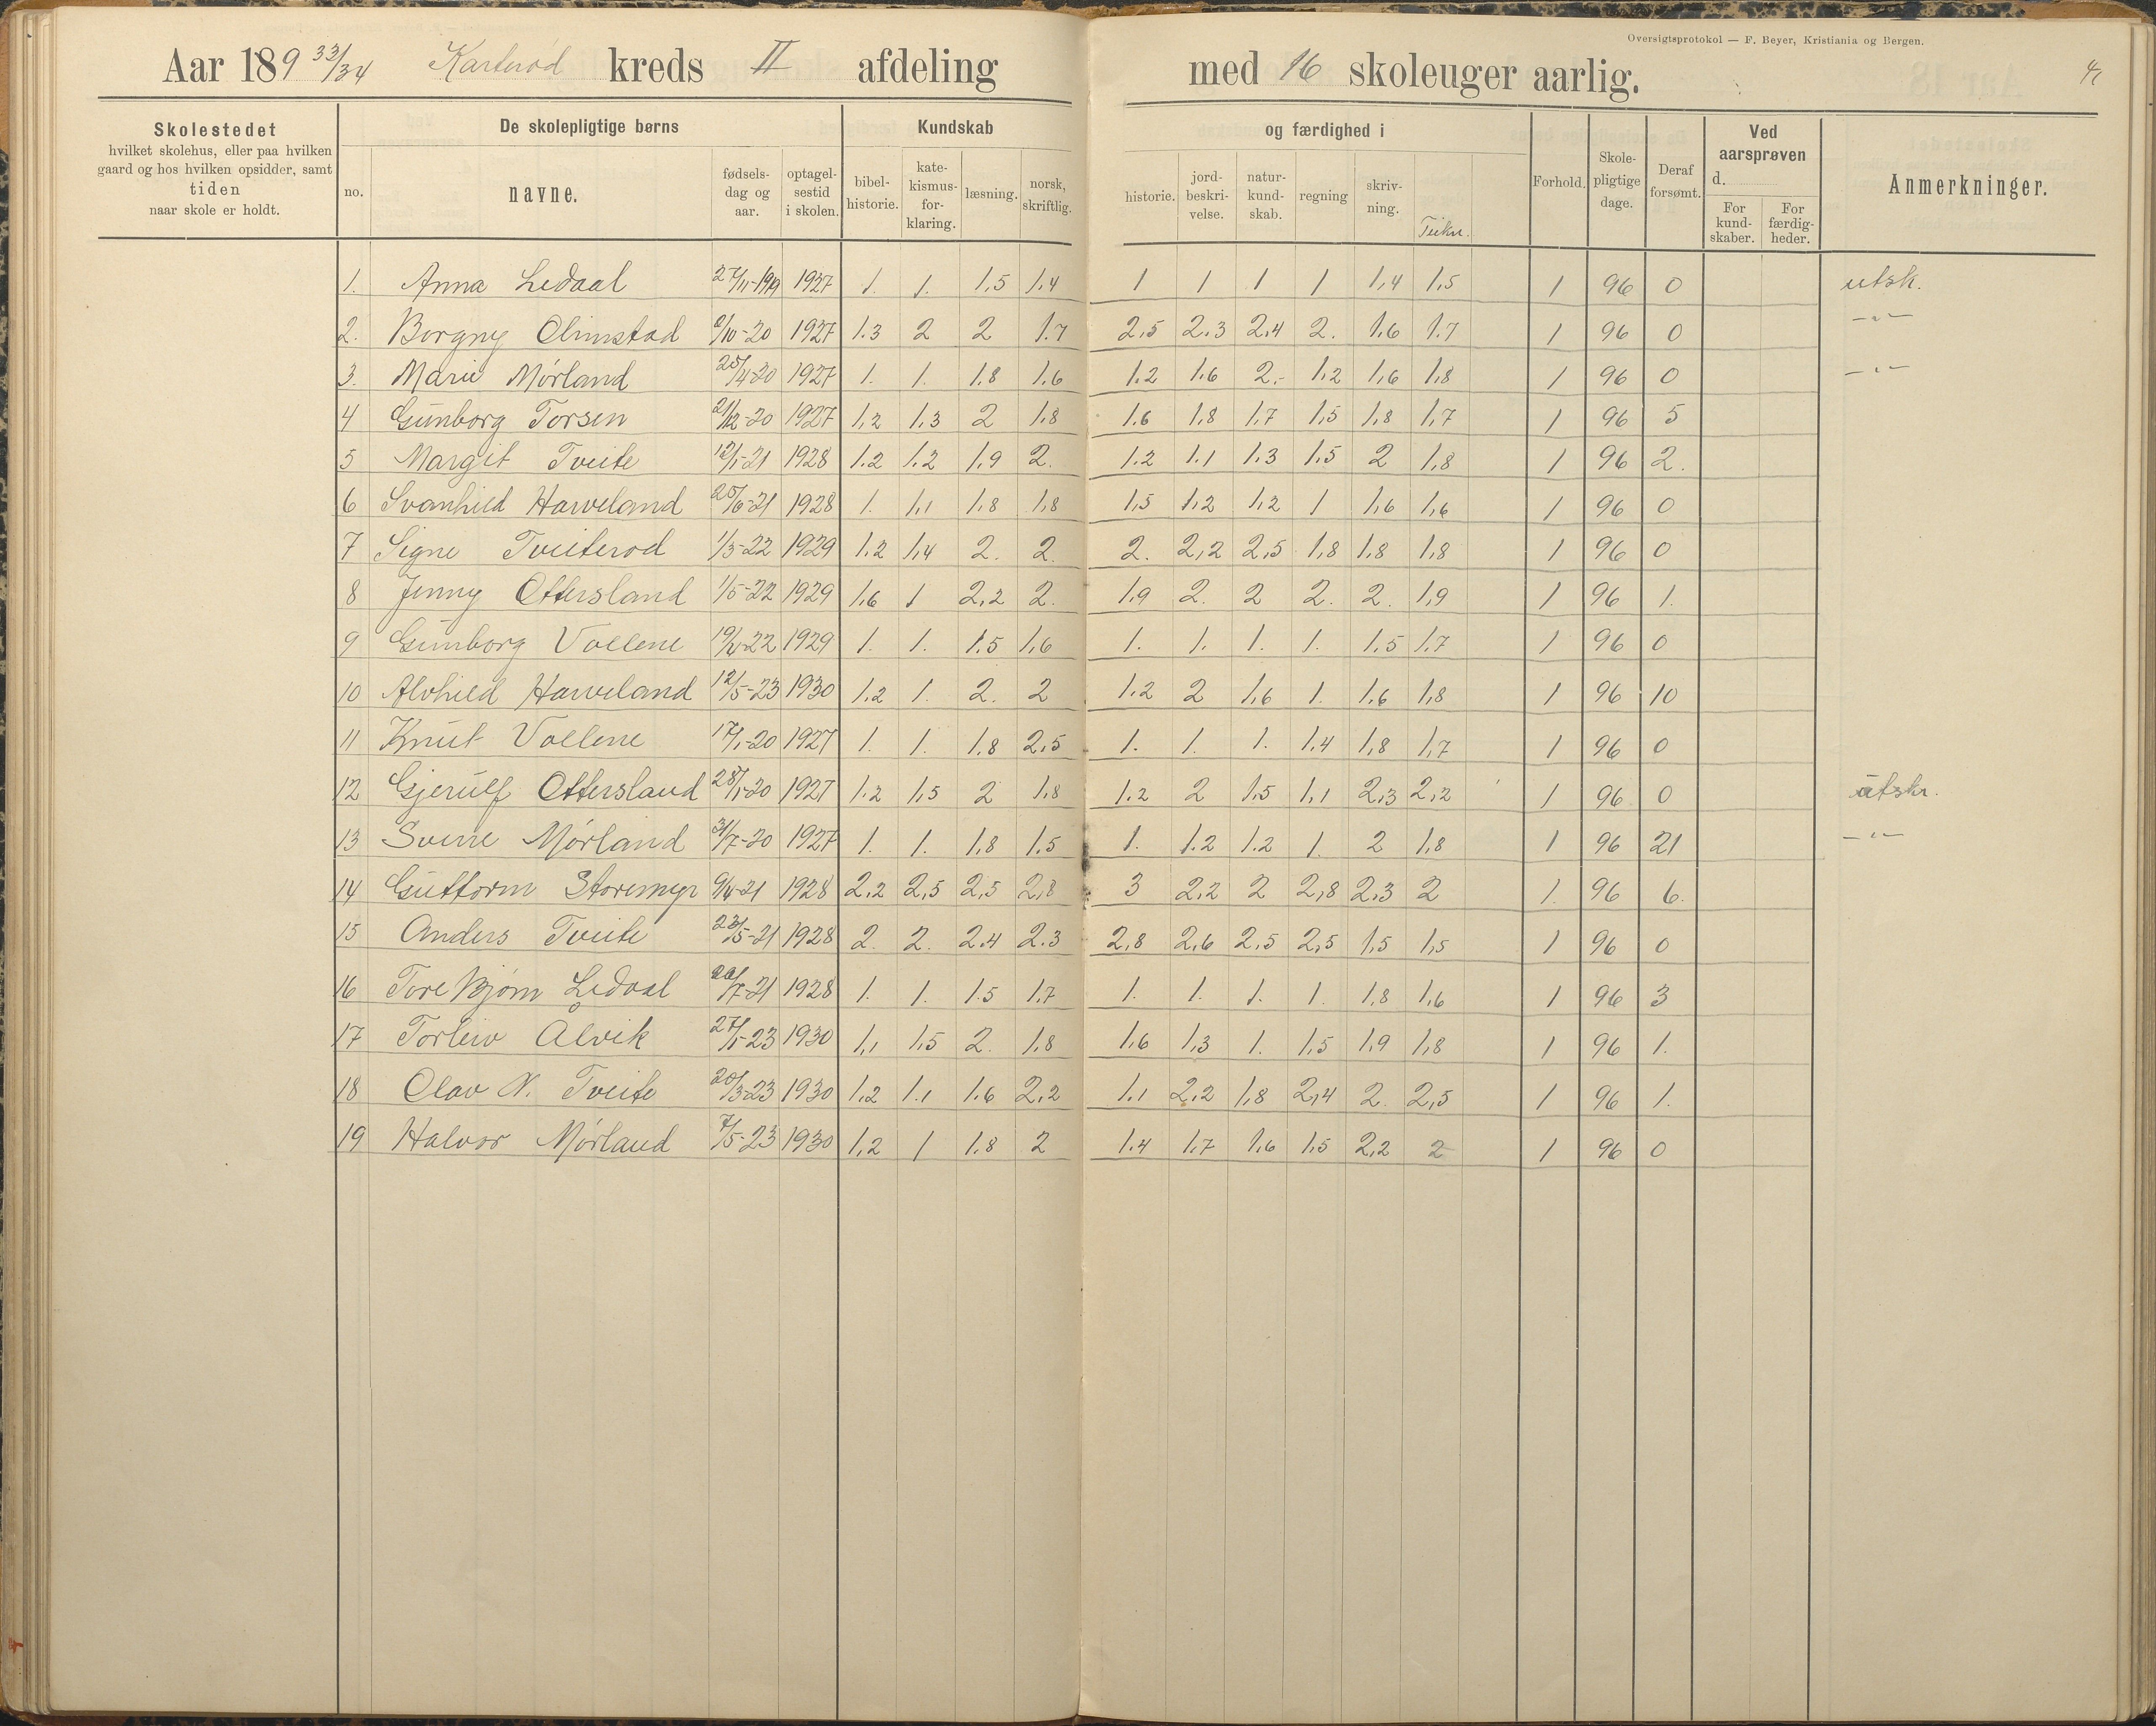 Oversigtsprotokol — F. Beyer, Kristiania og Bergen.
Aar 189 33/34 Karterød kreds II afdeling med 16 skoleuger aarlig. 4
Skolestedet
hvilket skolehus, eller paa hvilken
gaard og hos hvilken opsidder, samt
tiden
naar skole er holdt.
De skolepligtige børns
no. navne. fødsels-dag og aar. optagel-sestid i skolen.
Kundskab og færdighed i
bibel-historie. kate-kismus-for-klaring. læsning. norsk, skriftlig. historie. jord-beskri-velse. natur-kund-skab. regning skriv-ning. Teikn.
Forhold. Skole-pligtige dage. Deraf forsømt.
Ved aarsprøven d.
For kund-skaber. For færdig-heder.
Anmerkninger.
1. Anna Ledaal 27/11-1919 1927 1. 1. 1,5 1,4 1 1 1 1 1,4 1,5 1 96 0 utsk.
2. Borgny Olimstad 6/10-20 1927 1.3 2 2 1.7 2,5 2.3 2,4 2. 1.6 1.7 1 96 0 -"-
3. Marie Mørland 25/4-20 1927 1. 1. 1.8 1.6 1.2 1.6 2.- 1.2 1,6 1,8 1 96 0 -"-
4 Gunborg Torsen 21/12-20 1927 1,2 1,3 2 1.8 1.6 1,8 1,7 1,5 1,8 1,7 1 96 5
5 Margit Tveite 12/1-21 1928 1.2 1.2 1,9 2. 1.2 1.1 1.3 1.5 2 1,8 1 96 2.
6 Svanhild Haveland 25/6-21 1928 1. 1,1 1,8 1,8 1,5 1,2 1,2 1 1,6 1,6 1 96 0
7 Signe Tveiterød 1/3-22 1929 1.2 1,4 2. 2. 2. 2,2 2,5 1,8 1,8 1,8 1 96 0
8 Jenny Ottersland 1/5-22 1929 1,6 1 2,2 2. 1.9 2. 2 2. 2. 1,9 1 96 1.
9 Gunborg Vollene 1929 1. 1. 1.5 1,6 1. 1. 1. 1. 1.5 1.7 1 96 0
10 Alvhild Haveland 12/5-23 1930 1.2 1. 2. 2 1.2 2 1,6 1. 1.6 1,8 1 96 10
11 Knut Vollene 17/1-20 1927 1. 1. 1.8 2.5 1. 1. 1. 1.4 1,8 1,7 1 96 0
12 Gjerulf Ottersland 28/1-20 1927 1.2 1,5 2 1.8 1.2 2 1.5 1,1 2,3 2,2 1 96 0 utskr.
13 Sverre Mørland 31/7-20 1927 1. 1. 1,8 1.5 1. 1.2 1.2 1. 2 1,8 1 96 21 -"-
14 Guttorm Storemyr 9/4-21 1928 2.2 2,5 2,5 2,8 3 2,2 2 2,8 2.3 2 1. 96 6.
15 Anders Tveite 23/5-21 1928 2. 2. 2.4 2.3 2,8 2,6 2,5 2,5 1,5 1,5 1 96 0
16 Tore Bjørn Ledaal 1928 1. 1. 1.5 1.7 1. 1. 1. 1. 1,8 1,6 1 96 3
17 Torleiv Ålvik 27/1-23 1930 1,1 1,5 2. 1.8 1,6 1,3 1. 1,5 1,9 1,8 1 96 1.
18 Olav N. Tveite 20/3-23 1930 1.2 1.1 1.6 2,2 1.1 2.2 1,8 2,4 2. 2,5 1 96 1.
19 Halvor Mørland 7/5-23 1930 1,2 1 1.8 2 1.4 1,7 1,6 1,5 2,2 2 1 96 0